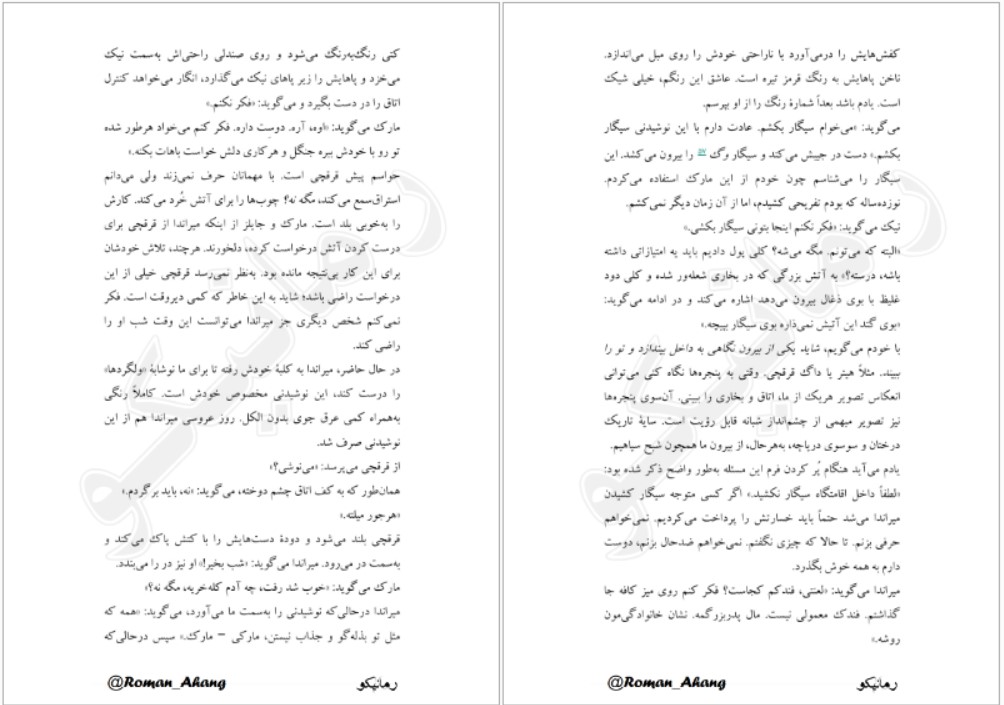 کفش‌هایش را درمی‌آورد با ناراحتی خودش را روی مبل می‌اندازد.
ناخن پاهایش به رنگ قرمز تیره است. عاشق این رنگم، خیلی شیک
است. یادم باشد بعداً شمارهٔ رنگ را از او بپرسم.
می‌گوید: «می‌خوام سیگار بکشم. عادت دارم با این نوشیدنی سیگار
بکشم.» دست در جیبش می‌کند و سیگار وگ را بیرون می‌کشد. این
سیگار را می‌شناسم چون خودم از این مارک استفاده می‌کردم.
نوزده‌ساله که بودم تفریحی کشیدم، اما از آن زمان دیگر نمی‌کشم.
نیک می‌گوید: «فکر نکنم اینجا بتونی سیگار بکشی.»
«البته که می‌تونم. مگه می‌شه؟ کلی پول دادیم باید یه امتیازاتی داشته
باشه، درسته؟» به آتش بزرگی که در بخاری شعله‌ور شده و کلی دود
غلیظ با بوی ذغال بیرون می‌دهد اشاره می‌کند و در ادامه می‌گوید:
«بوی گند این آتیش نمی‌ذاره بوی سیگار بپیچه.»
با خودم می‌گویم، شاید یکی از بیرون نگاهی به داخل بیندازد و تو را
ببیند. مثلاً هیتر یا داگ قرقچی. وقتی به پنجره‌ها نگاه کنی می‌توانی
انعکاس تصویر هریک از ما، اتاق و بخاری را ببینی. آن‌سوی پنجره‌ها
نیز تصویر مبهمی از چشم‌انداز شبانه قابل رؤیت است. سایهٔ تاریک
درختان و سوسوی دریاچه، به‌هرحال، از بیرون ما همچون شبح سیاهیم.
یادم می‌آید هنگام پُر کردن فرم این مسئله به‌طور واضح ذکر شده بود:
«لطفاً داخل اقامتگاه سیگار نکشید.» اگر کسی متوجه سیگار کشیدن
میراندا می‌شد حتماً باید خسارتش را پرداخت می‌کردیم. نمی‌خواهم
حرفی بزنم. تا حالا که چیزی نگفتم. نمی‌خواهم ضدحال بزنم، دوست
دارم به همه خوش بگذرد.
میراندا می‌گوید: «لعنتی، فندکم کجاست؟ فکر کنم روی میز کافه جا
گذاشتم. فندک معمولی نیست. مال پدربزرگمه. نشان خانوادگی‌مون
روشه.»
رمانیکو
@Roman_Ahang
کتی رنگ‌به‌رنگ می‌شود و روی صندلی راحتی‌اش به‌سمت نیک
می‌خزد و پاهایش را زیر پاهای نیک می‌گذارد، انگار می‌خواهد کنترل
اتاق را در دست بگیرد و می‌گوید: «فکر نکنم.»
مارک می‌گوید: «اوه، آره. دوستِ داره. فکر کنم می‌خواد هرطور شده
تو رو با خودش ببره جنگل و هرکاری دلش خواست باهات بکنه.»
حواسم پیش قرقچی است. با مهمانان حرف نمی‌زند ولی می‌دانم
استراق‌سمع می‌کند، مگه نه؟ چوب‌ها را برای آتش خُرد می‌کند. کارش
را به‌خوبی بلد است. مارک و جایلز از اینکه میراندا از قرقچی برای
درست کردن آتش درخواست کرده، دلخورند. هرچند، تلاش خودشان
برای این کار بی‌نتیجه مانده بود. به‌نظر نمی‌رسد قرقچی خیلی از این
درخواست راضی باشد؛ شاید به این خاطر که کمی دیروقت است. فکر
نمی‌کنم شخص دیگری جز میراندا می‌توانست این وقت شب او را
راضی کند.
در حال حاضر، میراندا به کلبهٔ خودش رفته تا برای ما نوشابهٔ «ولگردها»
را درست کند، این نوشیدنی مخصوص خودش است. کاملاً رنگی
به‌همراه کمی عرق جوی بدون الکل. روز عروسی میراندا هم از این
نوشیدنی صرف شد.
از قرقچی می‌پرسد: «می‌نوشی؟»
همان‌طور که به کف اتاق چشم دوخته، می‌گوید: «نه، باید برگردم.»
«هرجور میلته.»
قرقچی بلند می‌شود و دودهٔ دست‌هایش را با کتش پاک می‌کند و
به‌سمت در می‌رود. میراندا می‌گوید: «شب بخیر!» او نیز در را می‌بندد.
مارک می‌گوید: «خوب شد رفت، چه آدم کله‌خریه، مگه نه؟»
میراندا درحالی‌که نوشیدنی را به‌سمت ما می‌آورد، می‌گوید: «همه که
مثل تو بذله‌گو و جذاب نیستن، مارکی – مارک.» سپس درحالی‌که
رمانیکو
@Roman_Ahang